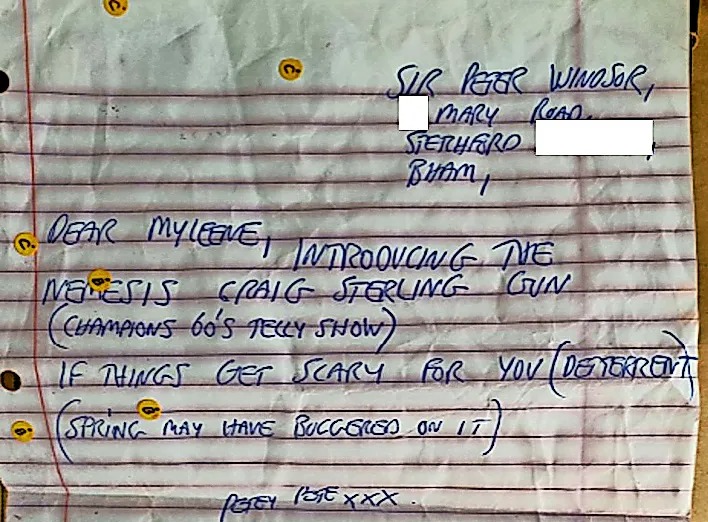 SIR PETER WINDSOR,
MARY ROAD,
STETCHFORD
BHAM,
DEAR MYLEENE, INTRODUCING THE
NEMESIS CRAIG STERLING GUN
(CHAMPIONS 60'S TELLY SHOW)
IF THINGS GET SCARY FOR YOU (DETERRENT)
(SPRING MAY HAVE BUGGERED ON IT)
PETEY PETE xxx.